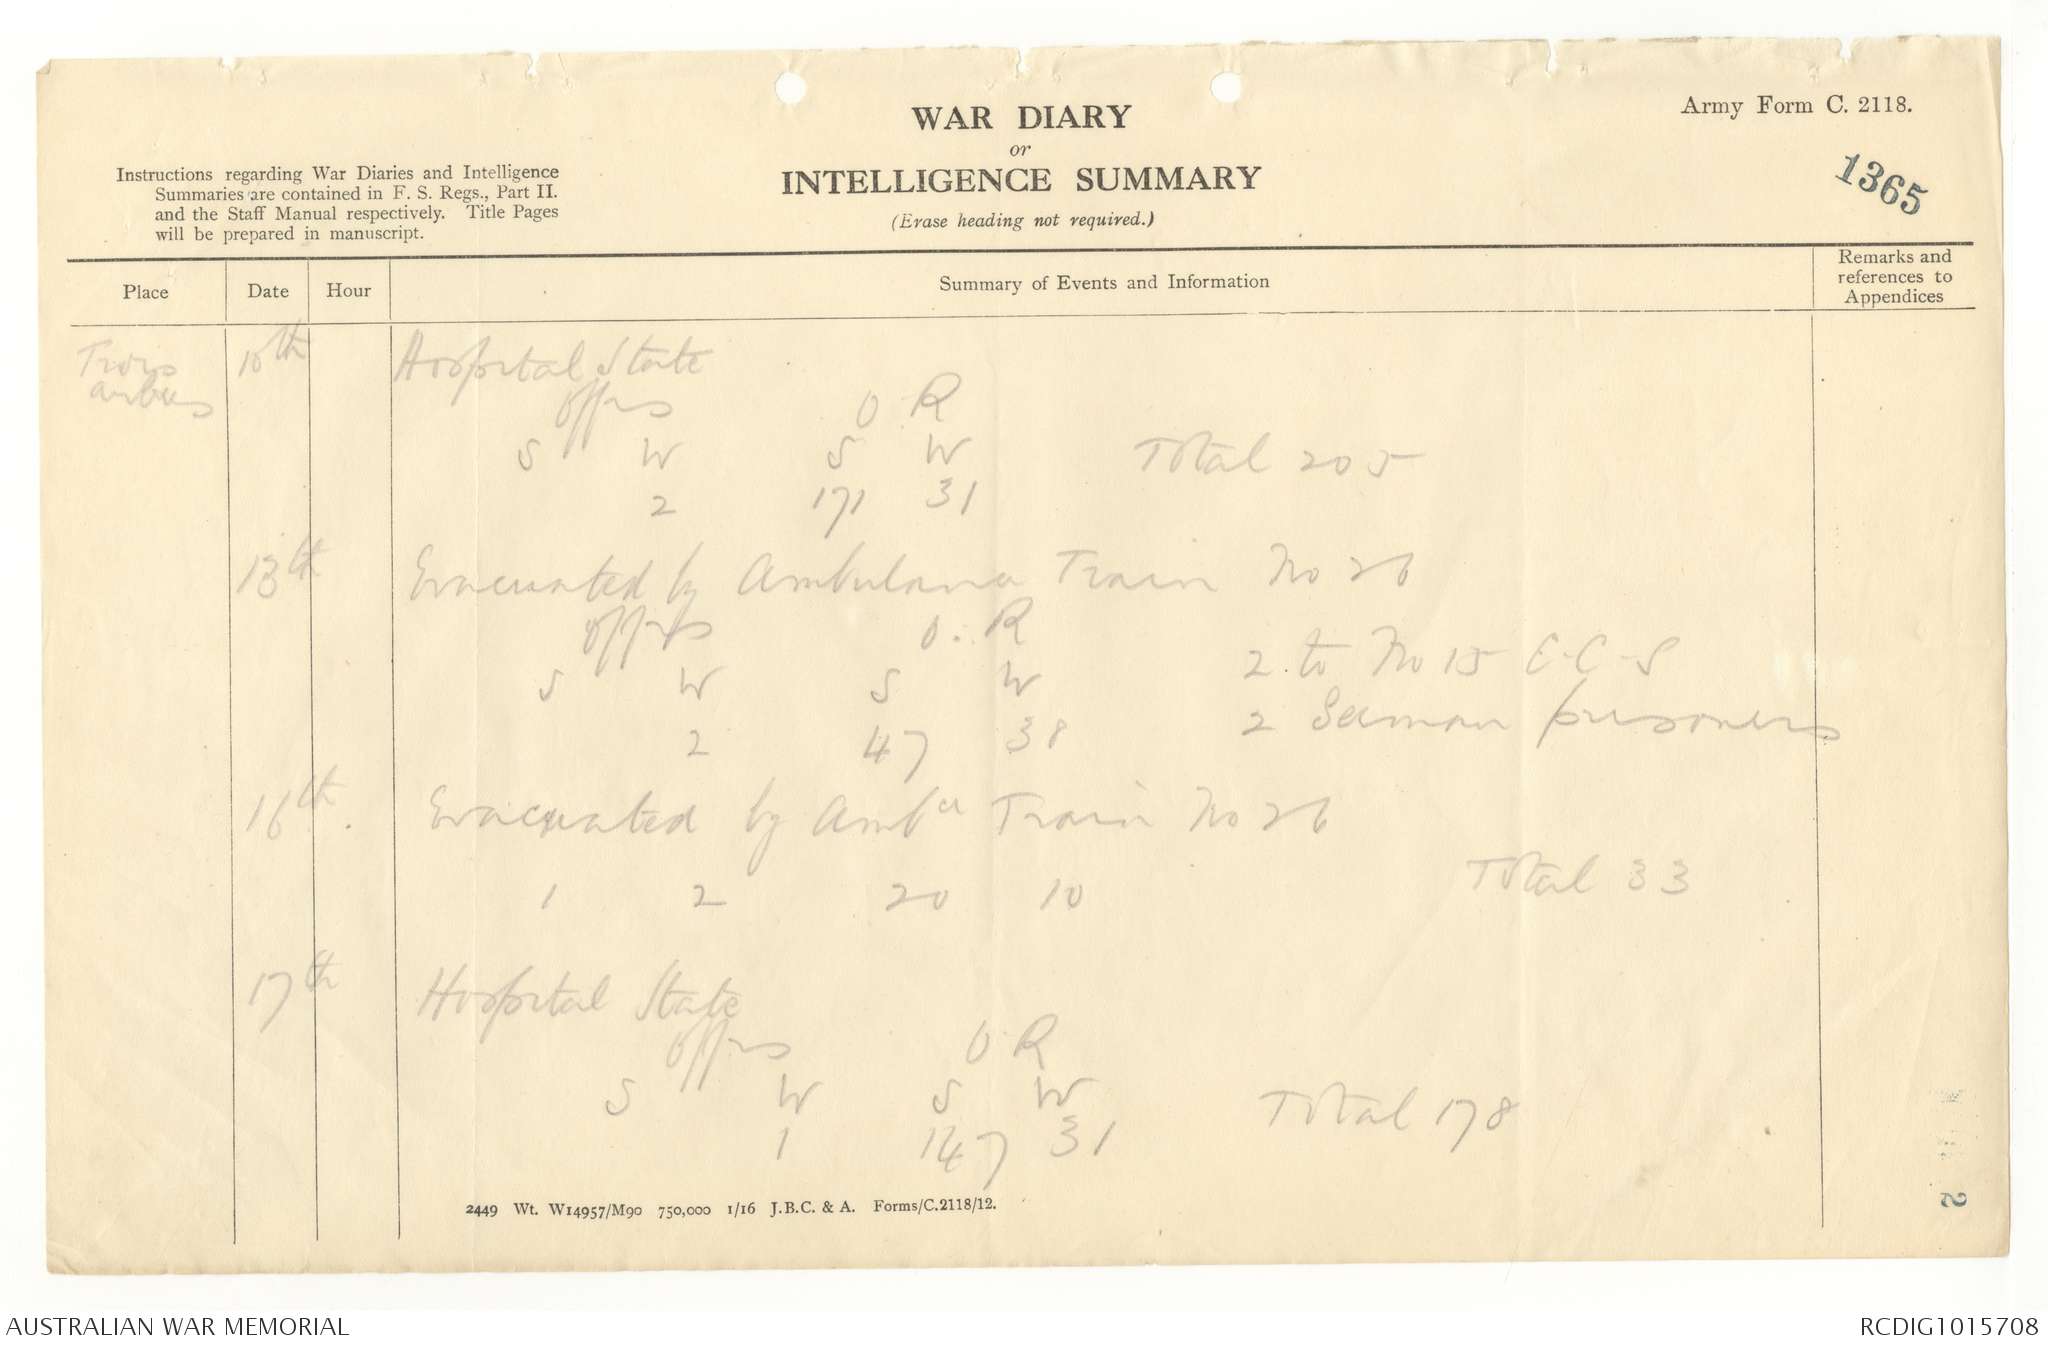 WAR DIARY
or
INTELLIGENCE SUMMARY
(Erase heading not required.)
Army Form C. 2118.
1365
Instructions regarding War Diaries and Intelligence
Summaries are contained in F. S. Regs., Part II.
and the Staff Manual respectively. Title Pages
will be prepared in manuscript.
Place Date Hour Summary of Events and Information Remarks and references to Appendices
Trois arbres 10th Hospital State
Offrs O.R
S W S W Total 205
2 171 31
13th Evacuated by Ambulance Train No 26
Offrs O.R
S W S W 2 to No 15 C-C-S
2 47 38 2 German prisoners
16th. Evacuated by Ambce Train No 26
1 2 20 10 Total 33
17th Hospital State
Offrs O.R
S W S W Total 178
1 147 31
2449 Wt. W14957/M90 750,000 1/16 J.B.C. & A. Forms/C.2118/12.
2
AUSTRALIAN WAR MEMORIAL
RCDIG1015708